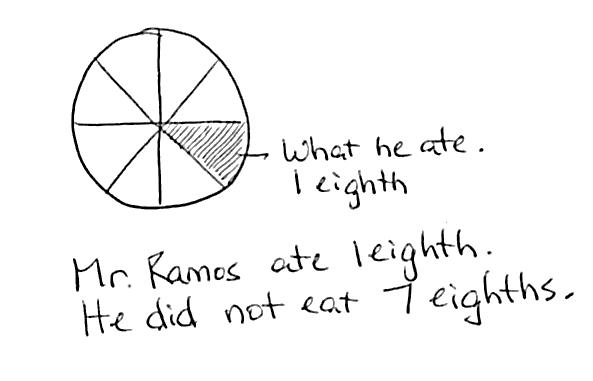 What he ate.
1 eighth
Mr. Ramos ate 1 eighth.
He did not eat 7 eighths.